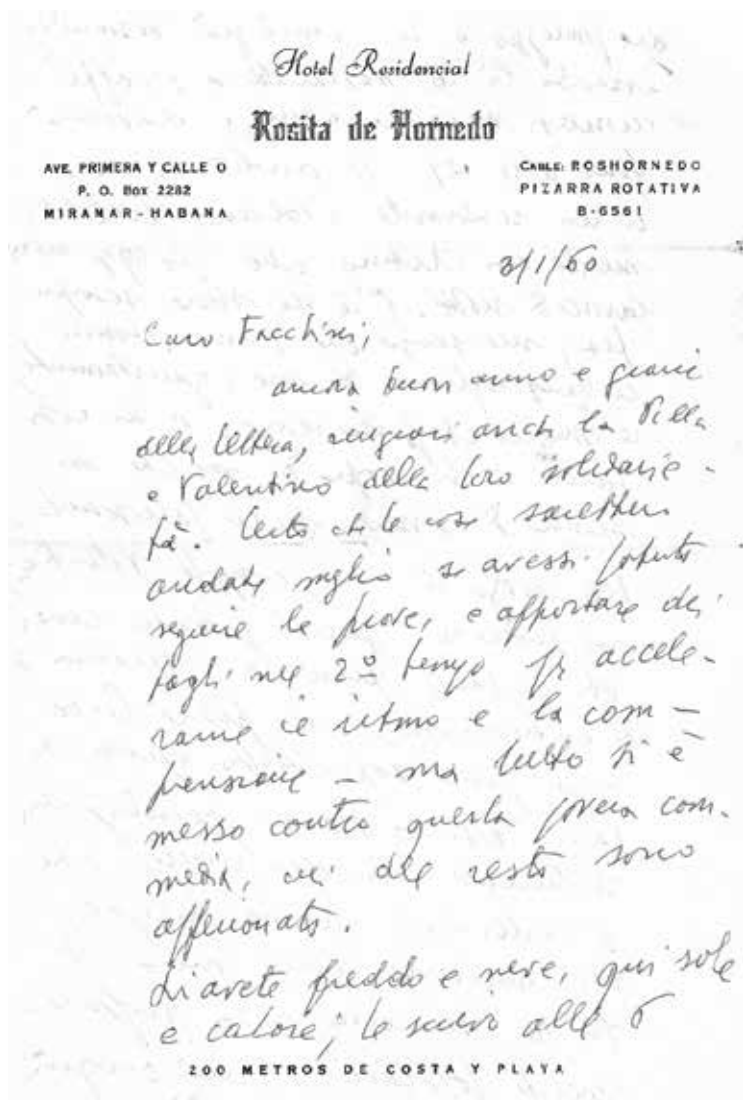 Hotel Residencial
Rosita de Hornedo
AVE. PRIMERA Y CALLE O
P. O. Box 2282
MIRAMAR - HABANA
CABLE: ROSHORNEDO
PIZARRA ROTATIVA
B-6561
3/1/60
Caro Facchini,
ancora buon anno e grazie
della lettera, ringrazi anche la
e Valentino della loro solidarie-
tà. Certo che le cose sarebbero
andate meglio se avessi potuto
seguire le prove, e apportare dei
tagli nel 2º tempo per accele-
rarne il ritmo e la com-
prensione – ma tutto si è
messo contro questa povera com-
media, cui del resto sono
affezionato.
Lì avete freddo e neve, qui sole
e calore; le scrivo alle 6
200 METROS DE COSTA Y PLAYA